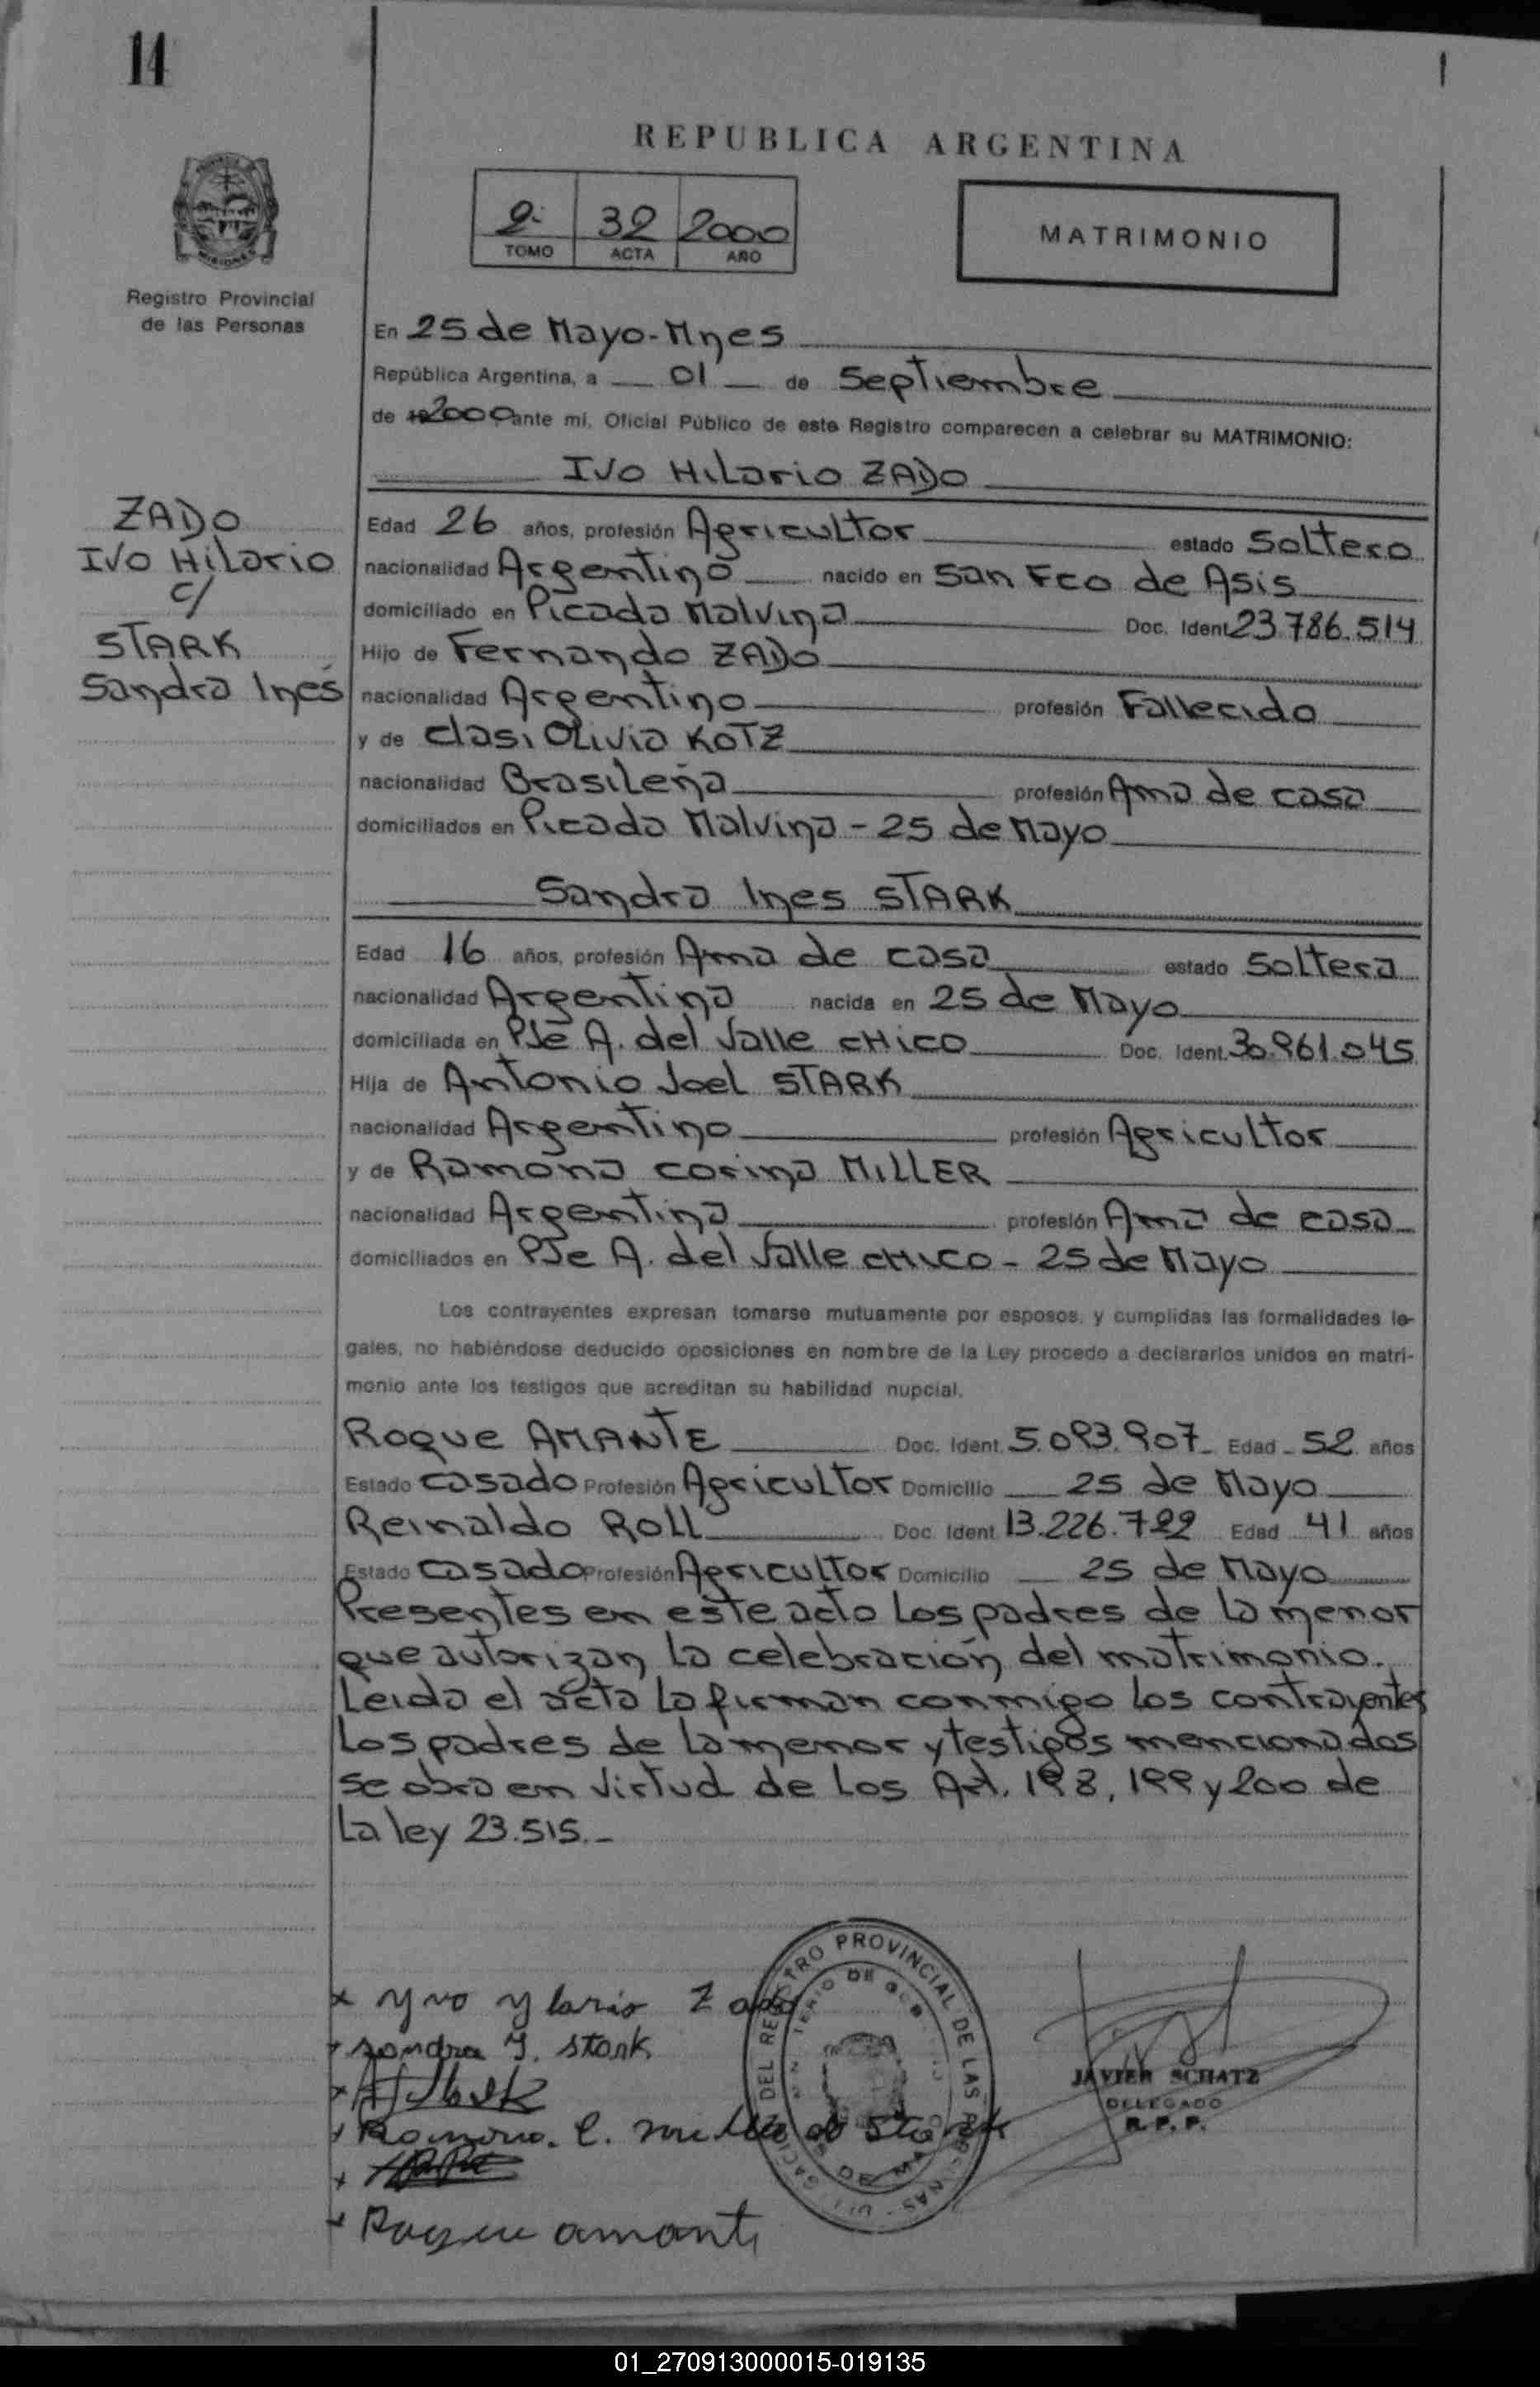 14
REPUBLICA ARGENTINA
2º 32 2000
TOMO ACTA AÑO
MATRIMONIO
MISIONES
Registro Provincial
de las Personas
En 25 de Mayo-Mnes
República Argentina, a 01 de Septiembre
de 19 2000 ante mí, Oficial Público de este Registro comparecen a celebrar su MATRIMONIO:
Ivo Hilario ZADO
ZADO
Ivo Hilario
c/
STARK
Sandra Inés
Edad 26 años, profesión Agricultor estado Soltero
nacionalidad Argentino nacido en San Fco de Asis
domiciliado en Picada Malvina Doc. Ident. 23.786.514
Hijo de Fernando ZADO
nacionalidad Argentino profesión Fallecido
y de Clasi Olivia KOTZ
nacionalidad Brasileña profesión Ama de casa
domiciliados en Picada Malvina - 25 de Mayo
Sandra Ines STARK
Edad 16 años, profesión Ama de casa estado Soltera
nacionalidad Argentina nacida en 25 de Mayo
domiciliada en PJe A. del Valle CHICO Doc. Ident. 30.961.045
Hija de Antonio Joel STARK
nacionalidad Argentino profesión Agricultor
y de Ramona Corina MILLER
nacionalidad Argentina profesión Ama de casa
domiciliados en PJe A. del Valle CHICO - 25 de Mayo
Los contrayentes expresan tomarse mutuamente por esposos, y cumplidas las formalidades le-
gales, no habiéndose deducido oposiciones en nombre de la Ley procedo a declararlos unidos en matri-
monio ante los testigos que acreditan su habilidad nupcial.
Roque AMANTE Doc. Ident. 5.093.907 Edad 52 años
Estado Casado Profesión Agricultor Domicilio 25 de Mayo
Reinaldo ROLL Doc. Ident. 13.226.722 Edad 41 años
Estado Casado Profesión Agricultor Domicilio 25 de Mayo
Presentes en este acto los padres de la menor
que autorizan la celebración del matrimonio.
Leida el acta la firman conmigo los contrayentes
los padres de la menor y testigos mencionados
se obra en virtud de los Art. 198, 199 y 200 de
la ley 23.515.-
x yvo ylario Zado
x Sandra I. Stark
x
x Ramona. C. miller de Stark
x
x Roque amante
DEL REGISTRO PROVINCIAL DE LAS
JAVIER SCHATZ
DELEGADO
R.P.P.
01_270913000015-019135